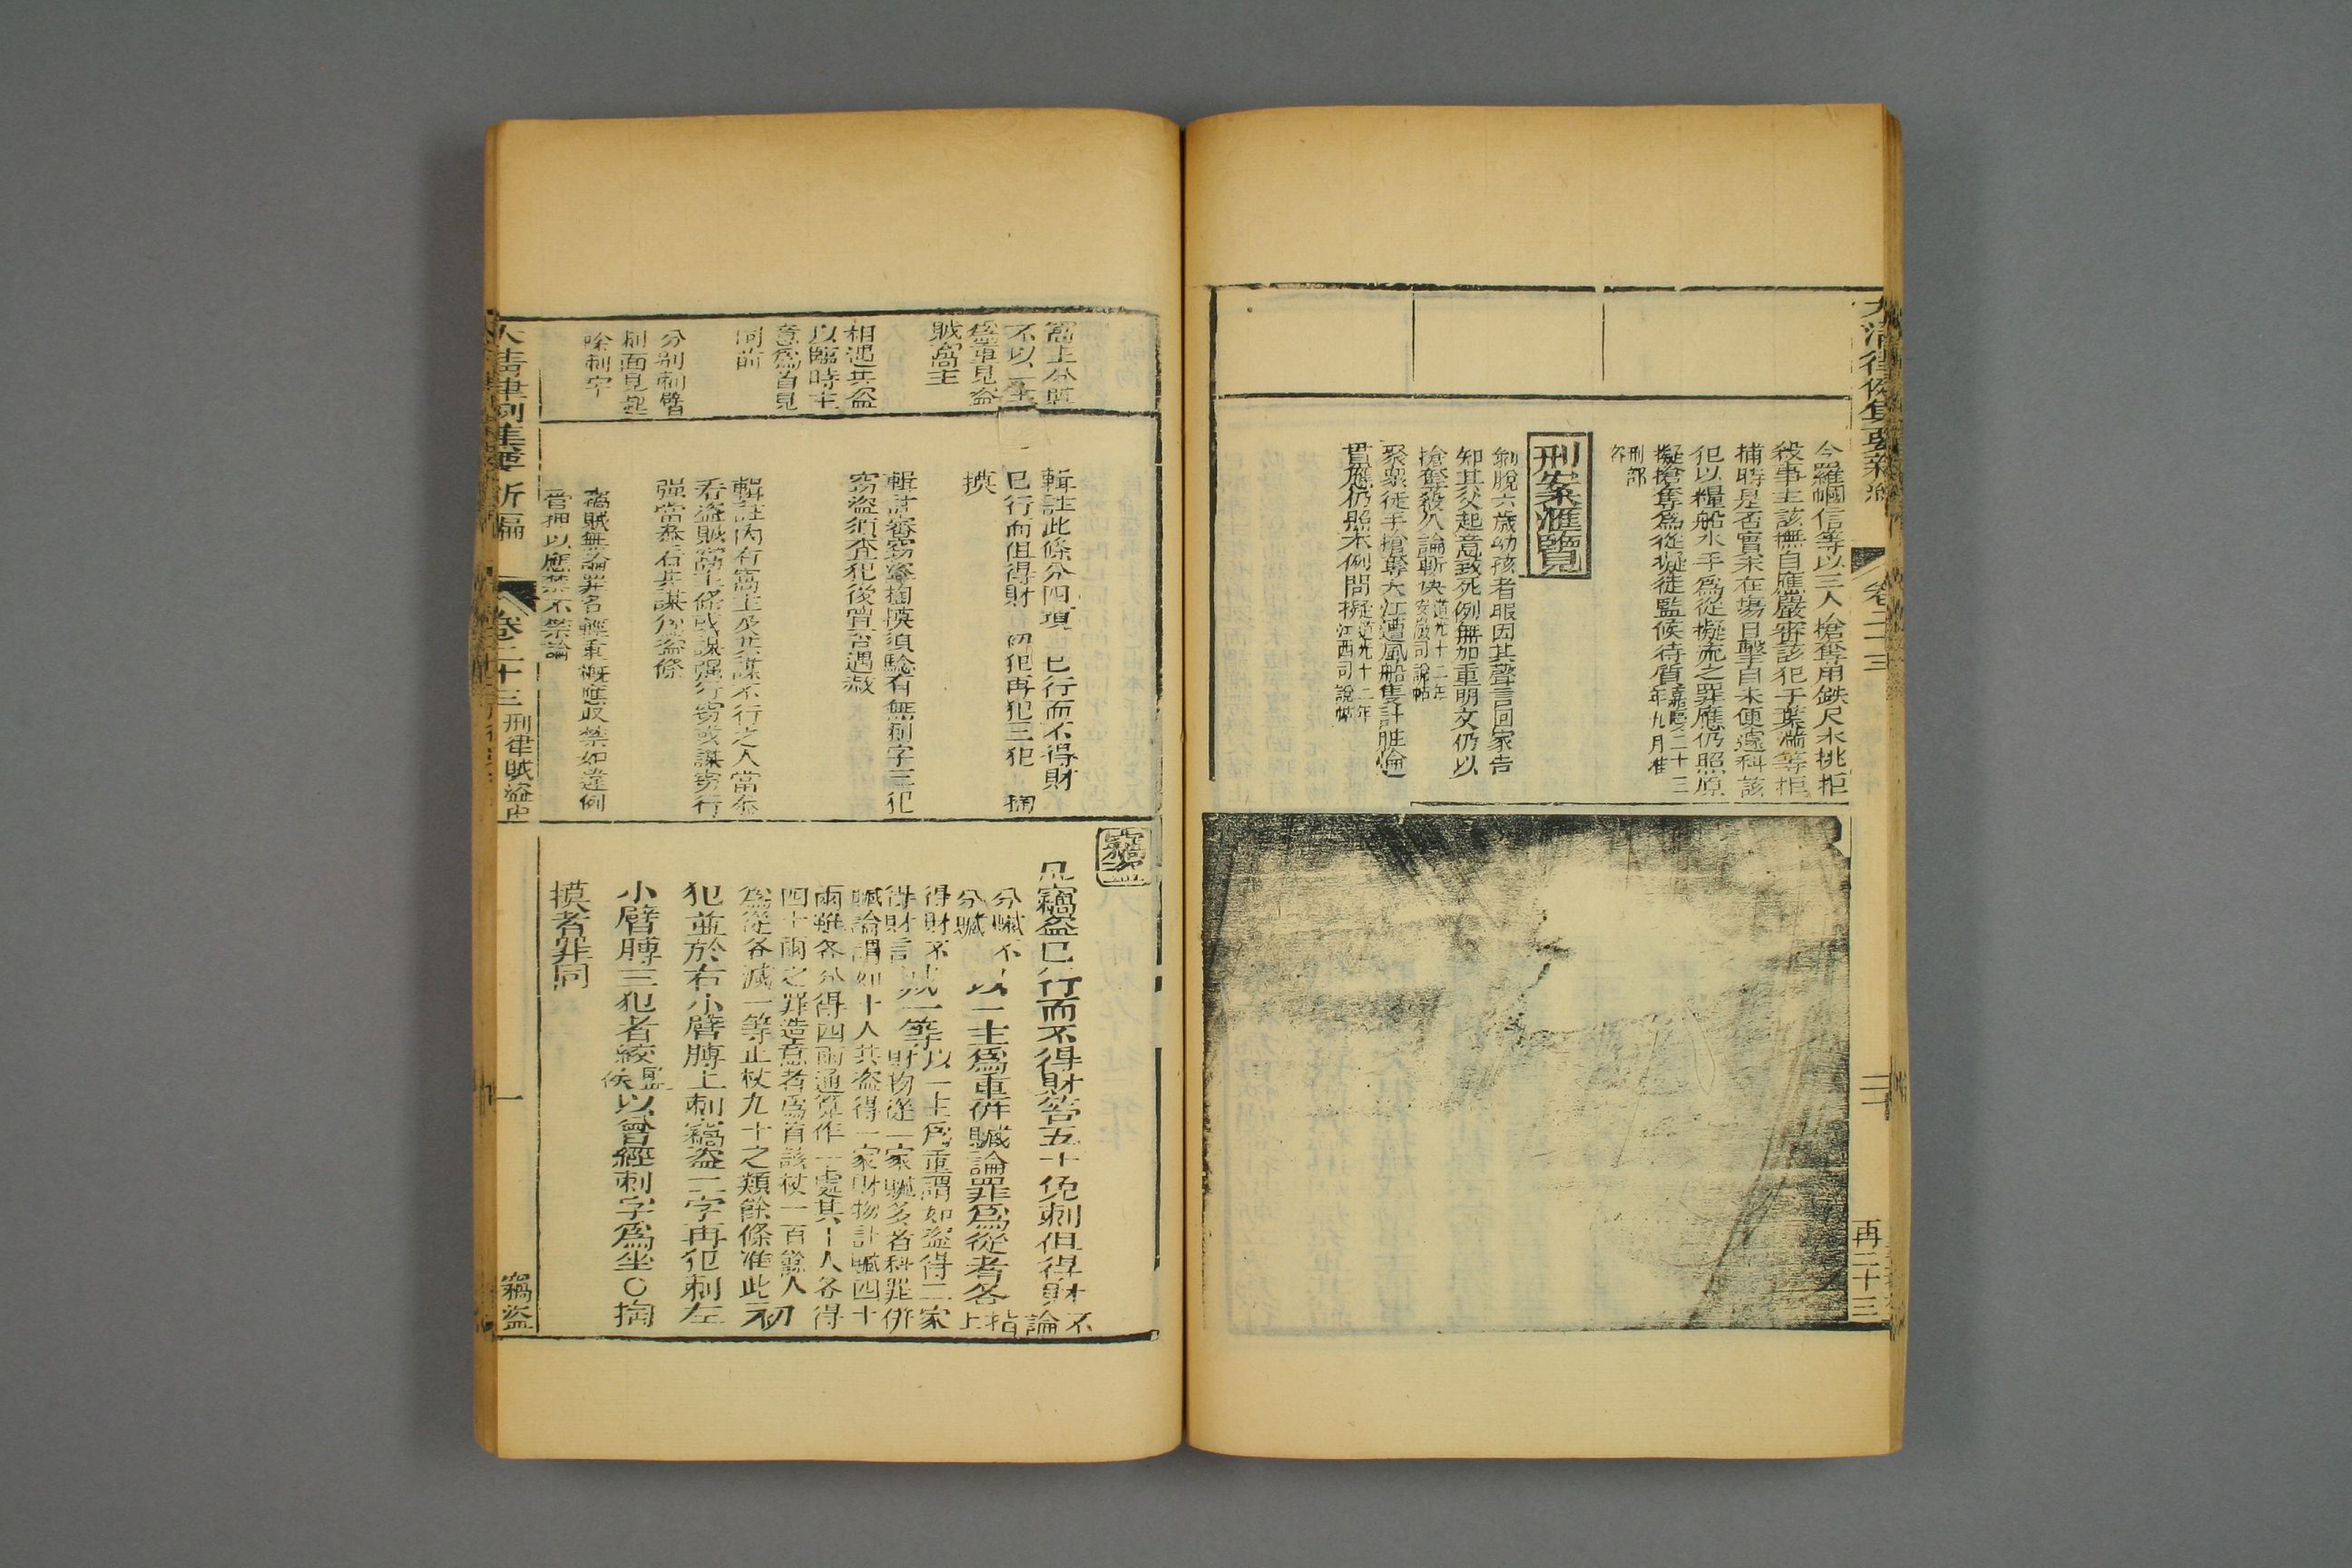 大清律例集要新編
卷二十三
再二十三
今羅幗信等以三人搶奪用鉄尺木挑拒
殺事主該撫自應嚴審該犯于葉滿等拒
捕時是否實未在塲目擊自未便遽科該
犯以糧船水手爲從擬流之罪應仍照原
擬搶奪爲從擬徒監候待質嘉慶二十三
年九月准
刑部
咨
刑案滙覽
剝脫六歲幼孩者服因其聲言回家告
知其父起意致死例無加重明文仍以
搶奪殺人論斬决道光十二年
安徽司說帖
聚衆徒手搶奪大江遭風船隻計賍論
貫應仍照本例問擬道光十二年
江西司說帖
窩主分贓
不以一主
爲重見盜
賊窩主
相遇共盜
以臨時主
意爲首見
同前
分别刺臂
刺面見起
除刺字
輯註此條分四項 已行而不得財
已行而但得財 初犯再犯三犯 掏
摸
輯註審竊盜掏摸須驗有無刺字三犯
窃盜須查犯後曾否遇赦
輯註內有窩主及共謀不行之人當叅
看盜賊窩主條或謀强行窃或謀窃行
强當叅看共謀爲盜條
竊賊無論罪名輕重概應収禁如違例
管押以應禁不禁論
竊盜
凡竊盜已行而不得財笞五十免刺但得財不
論
分贓不
分贓 以一主爲重併贓論罪爲從者各指
上
得財不 減一等以一主爲重謂如盜得二家
得財言 財物從一家贓多者科罪併
贓論謂如十人共盜得一家財物計贓四十
兩雖各分得四兩通算作一處其十人各得
四十兩之罪造意者爲首該杖一百餘人
爲從各減一等止杖九十之類餘條准此初
犯並於右小臂膊上刺竊盜二字再犯刺左
小臂膊三犯者絞監
候以曾經刺字爲坐○掏
摸者罪同
大清律例集要新編
卷二十三
刑律賊盜中
一
竊盜